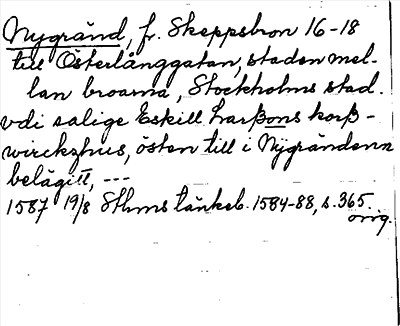 Nygränd, fr. Skeppsbron 16-18
till Österlånggatan, staden mel-
lan broarna, Stockholms stad.
vdi salige Eskill Larßons korß-
wirckzhus, östen till i Nÿgrändenn
belägitt, ---
1587 19/8 Sthms tänkeb. 1584-88, s. 365.
orig.